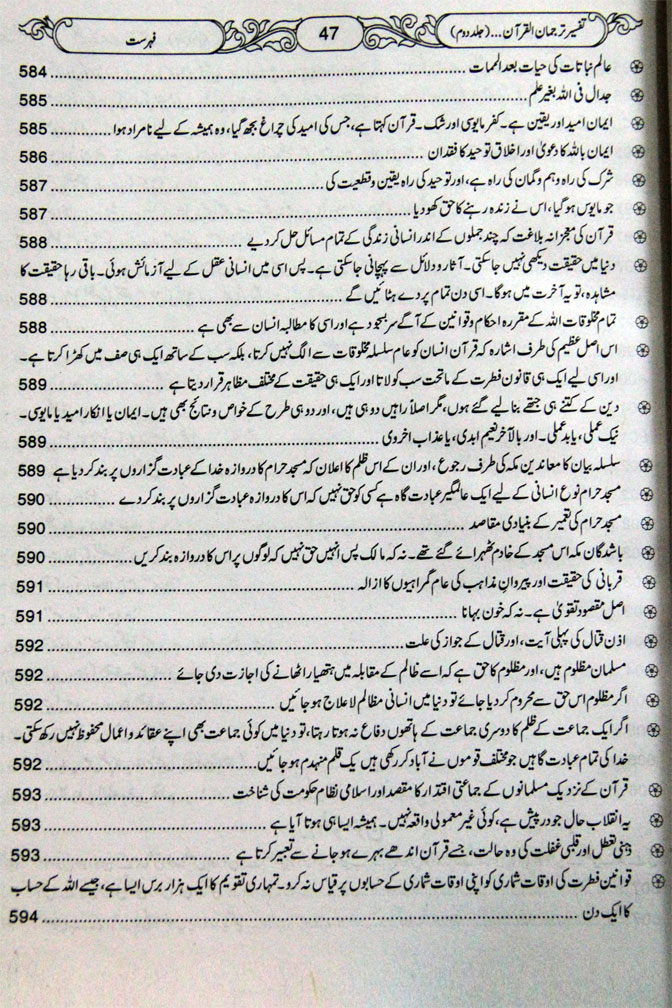 تفسیر ترجمان القرآن... (جلد دوم) 47 فہرست
عالم نباتات کی حیات بعد الممات ... 584
جدال فی اللہ بغیر علم ... 585
ایمان امید اور یقین ہے۔ کفر مایوسی اور شک۔ قرآن کہتا ہے، جس کی امید کی چراغ بجھ گیا، وہ ہمیشہ کے لیے نامراد ہوا ... 585
ایمان باللہ کا دعویٰ اور اخلاق توحید کا فقدان ... 586
شرک کی راہ وہم وگمان کی راہ ہے، اور توحید کی راہ یقین وقطعیت کی ... 587
جو مایوس ہوگیا، اس نے زندہ رہنے کا حق کھودیا ... 587
قرآن کی معجزانہ بلاغت کہ چند جملوں کے اندر انسانی زندگی کے تمام مسائل حل کردیے ... 588
دنیا میں حقیقت دیکھی نہیں جاسکتی۔ آثار ودلائل سے پہچانی جاسکتی ہے۔ پس اسی میں انسانی عقل کے لیے آزمائش ہوئی۔ باقی رہا حقیقت کا
مشاہدہ، تو یہ آخرت میں ہوگا۔ اسی دن تمام پردے ہٹائیں گے ... 588
تمام مخلوقات اللہ کے مقررہ احکام وقوانین کے آگے سربسجود ہے اور اسی کا مطالبہ انسان سے بھی ہے ... 588
اس اصل عظیم کی طرف اشارہ کہ قرآن انسان کو عام سلسلہ مخلوقات سے الگ نہیں کرتا، بلکہ سب کے ساتھ ایک ہی صف میں کھڑا کرتا ہے۔
اور اسی لیے ایک ہی قانون فطرت کے ماتحت سب کو لاتا اور ایک ہی حقیقت کے مختلف مظاہر قرار دیتا ہے ... 589
دین کے کتنے ہی جتھے بنا لیے گئے ہوں، مگر اصلاً راہیں دو ہی ہیں، اور دو ہی طرح کے خواص ونتائج بھی ہیں۔ ایمان یا انکار امید یا مایوسی۔
نیک عملی، یا بدعملی۔ اور بالآخر نعیم ابدی، یا عذاب اخروی ... 589
سلسلہ بیان کا معاندین مکہ کی طرف رجوع، اور ان کے اس ظلم کا اعلان کہ مسجد حرام کا دروازہ خدا کے عبادت گزاروں پر بند کردیا ہے 589
مسجد حرام نوع انسانی کے لیے ایک عالمگیر عبادت گاہ ہے کسی کو حق نہیں کہ اس کا دروازہ عبادت گزاروں پر بند کردے ... 590
مسجد حرام کی تعمیر کے بنیادی مقاصد ... 590
باشندگان مکہ اس مسجد کے خادم ٹھہرائے گئے تھے۔ نہ کہ مالک پس انہیں حق نہیں کہ لوگوں پر اس کا دروازہ بند کریں ... 590
قربانی کی حقیقت اور پیروانِ مذاہب کی عام گمراہیوں کا ازالہ ... 591
اصل مقصود تقویٰ ہے۔ نہ کہ خون بہانا ... 591
اذن قتال کی پہلی آیت، اور قتال کے جواز کی علت ... 592
مسلمان مظلوم ہیں، اور مظلوم کا حق ہے کہ اسے ظالم کے مقابلہ میں ہتھیار اٹھانے کی اجازت دی جائے ... 592
اگر مظلوم اس حق سے محروم کردیا جائے تو دنیا میں انسانی مظالم لاعلاج ہوجائیں ... 592
اگر ایک جماعت کے ظلم کا دوسری جماعت کے ہاتھوں دفاع نہ ہوتا رہتا، تو دنیا میں کوئی جماعت بھی اپنے عقائد واعمال محفوظ نہیں رکھ سکتی۔
خدا کی تمام عبادت گاہیں جو مختلف قوموں نے آباد کر رکھی ہیں یک قلم منہدم ہوجائیں ... 592
قرآن کے نزدیک مسلمانوں کے جماعتی اقتدار کا مقصد اور اسلامی نظام حکومت کی شناخت ... 593
یہ انقلاب حال جو درپیش ہے، کوئی غیر معمولی واقعہ نہیں۔ ہمیشہ ایسا ہی ہوتا آیا ہے ... 593
ذہنی تعطل اور قلبی غفلت کی وہ حالت، جسے قرآن اندھے بہرے ہوجانے سے تعبیر کرتا ہے ... 593
قوانین فطرت کی اوقات شماری کو اپنی اوقات شماری کے حسابوں پر قیاس نہ کرو۔ تمہاری تقویم کا ایک ہزار برس ایسا ہے، جیسے اللہ کے حساب
کا ایک دن ... 594